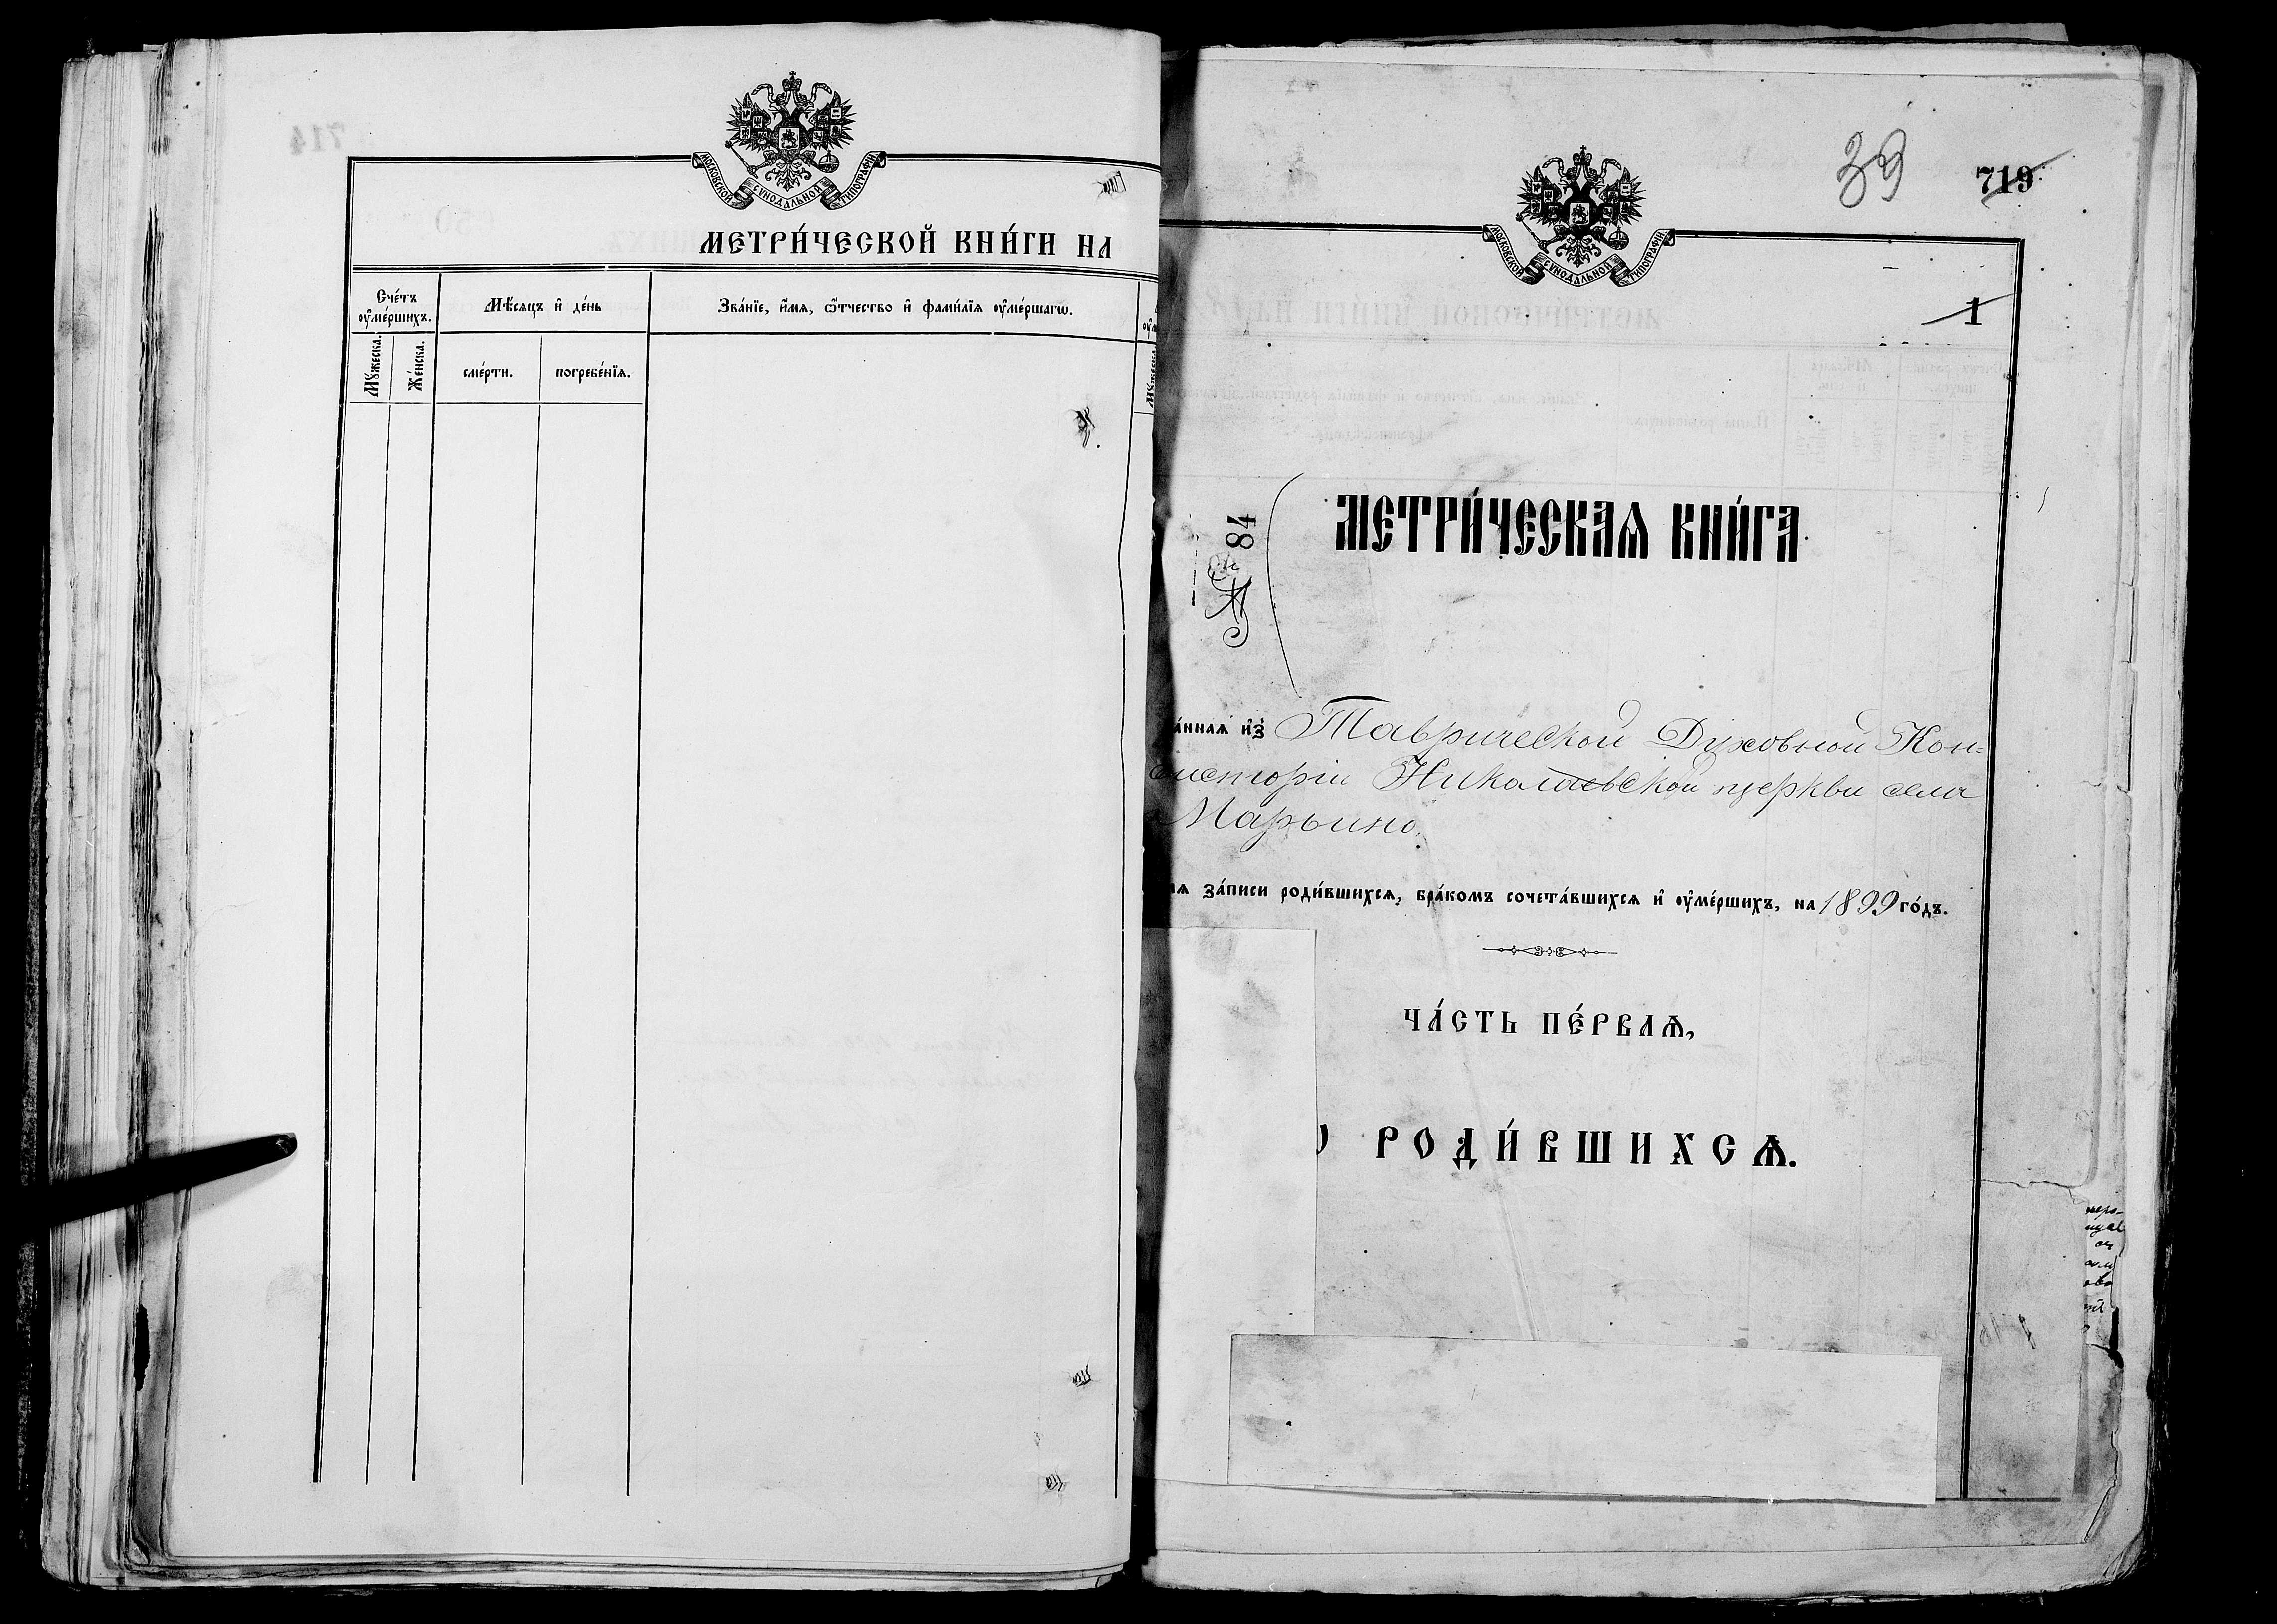 МОСКОВСКОЙ СѴНОДАЛЬНОЙ ТИПОГРАФІИ
МЕТРИ́ЧЕСКОЙ КНИ́ГИ НА
Сче́тъ ᲂу҆ме́ршихъ.
Мѣ́сяцъ и҆ де́нь
Зва́нїе, и҆́мѧ, ѻ҆́тчество и҆ фами́лїѧ ᲂу҆ме́ршагѡ.
Мꙋ́жеска.
Же́нска.
сме́рти.
погребе́нїѧ.
39
719
МОСКОВСКОЙ СѴНОДАЛЬНОЙ ТИПОГРАФІИ
1
№ 84
МЕТРИ́ЧЕСКАѦ КНИ́ГА
а́ннаѧ и҆з̾ Таврической Духовной Кон-
систоріи Николаевской церкви села
Марьино.
за́писи роди́вшихсѧ, бра́комъ сочета́вшихсѧ и҆ ᲂу҆ме́ршихъ, на 1899 го́дъ.
ЧА́СТЬ ПЕ́РВАѦ,
РОДИ́ВШИХСѦ.